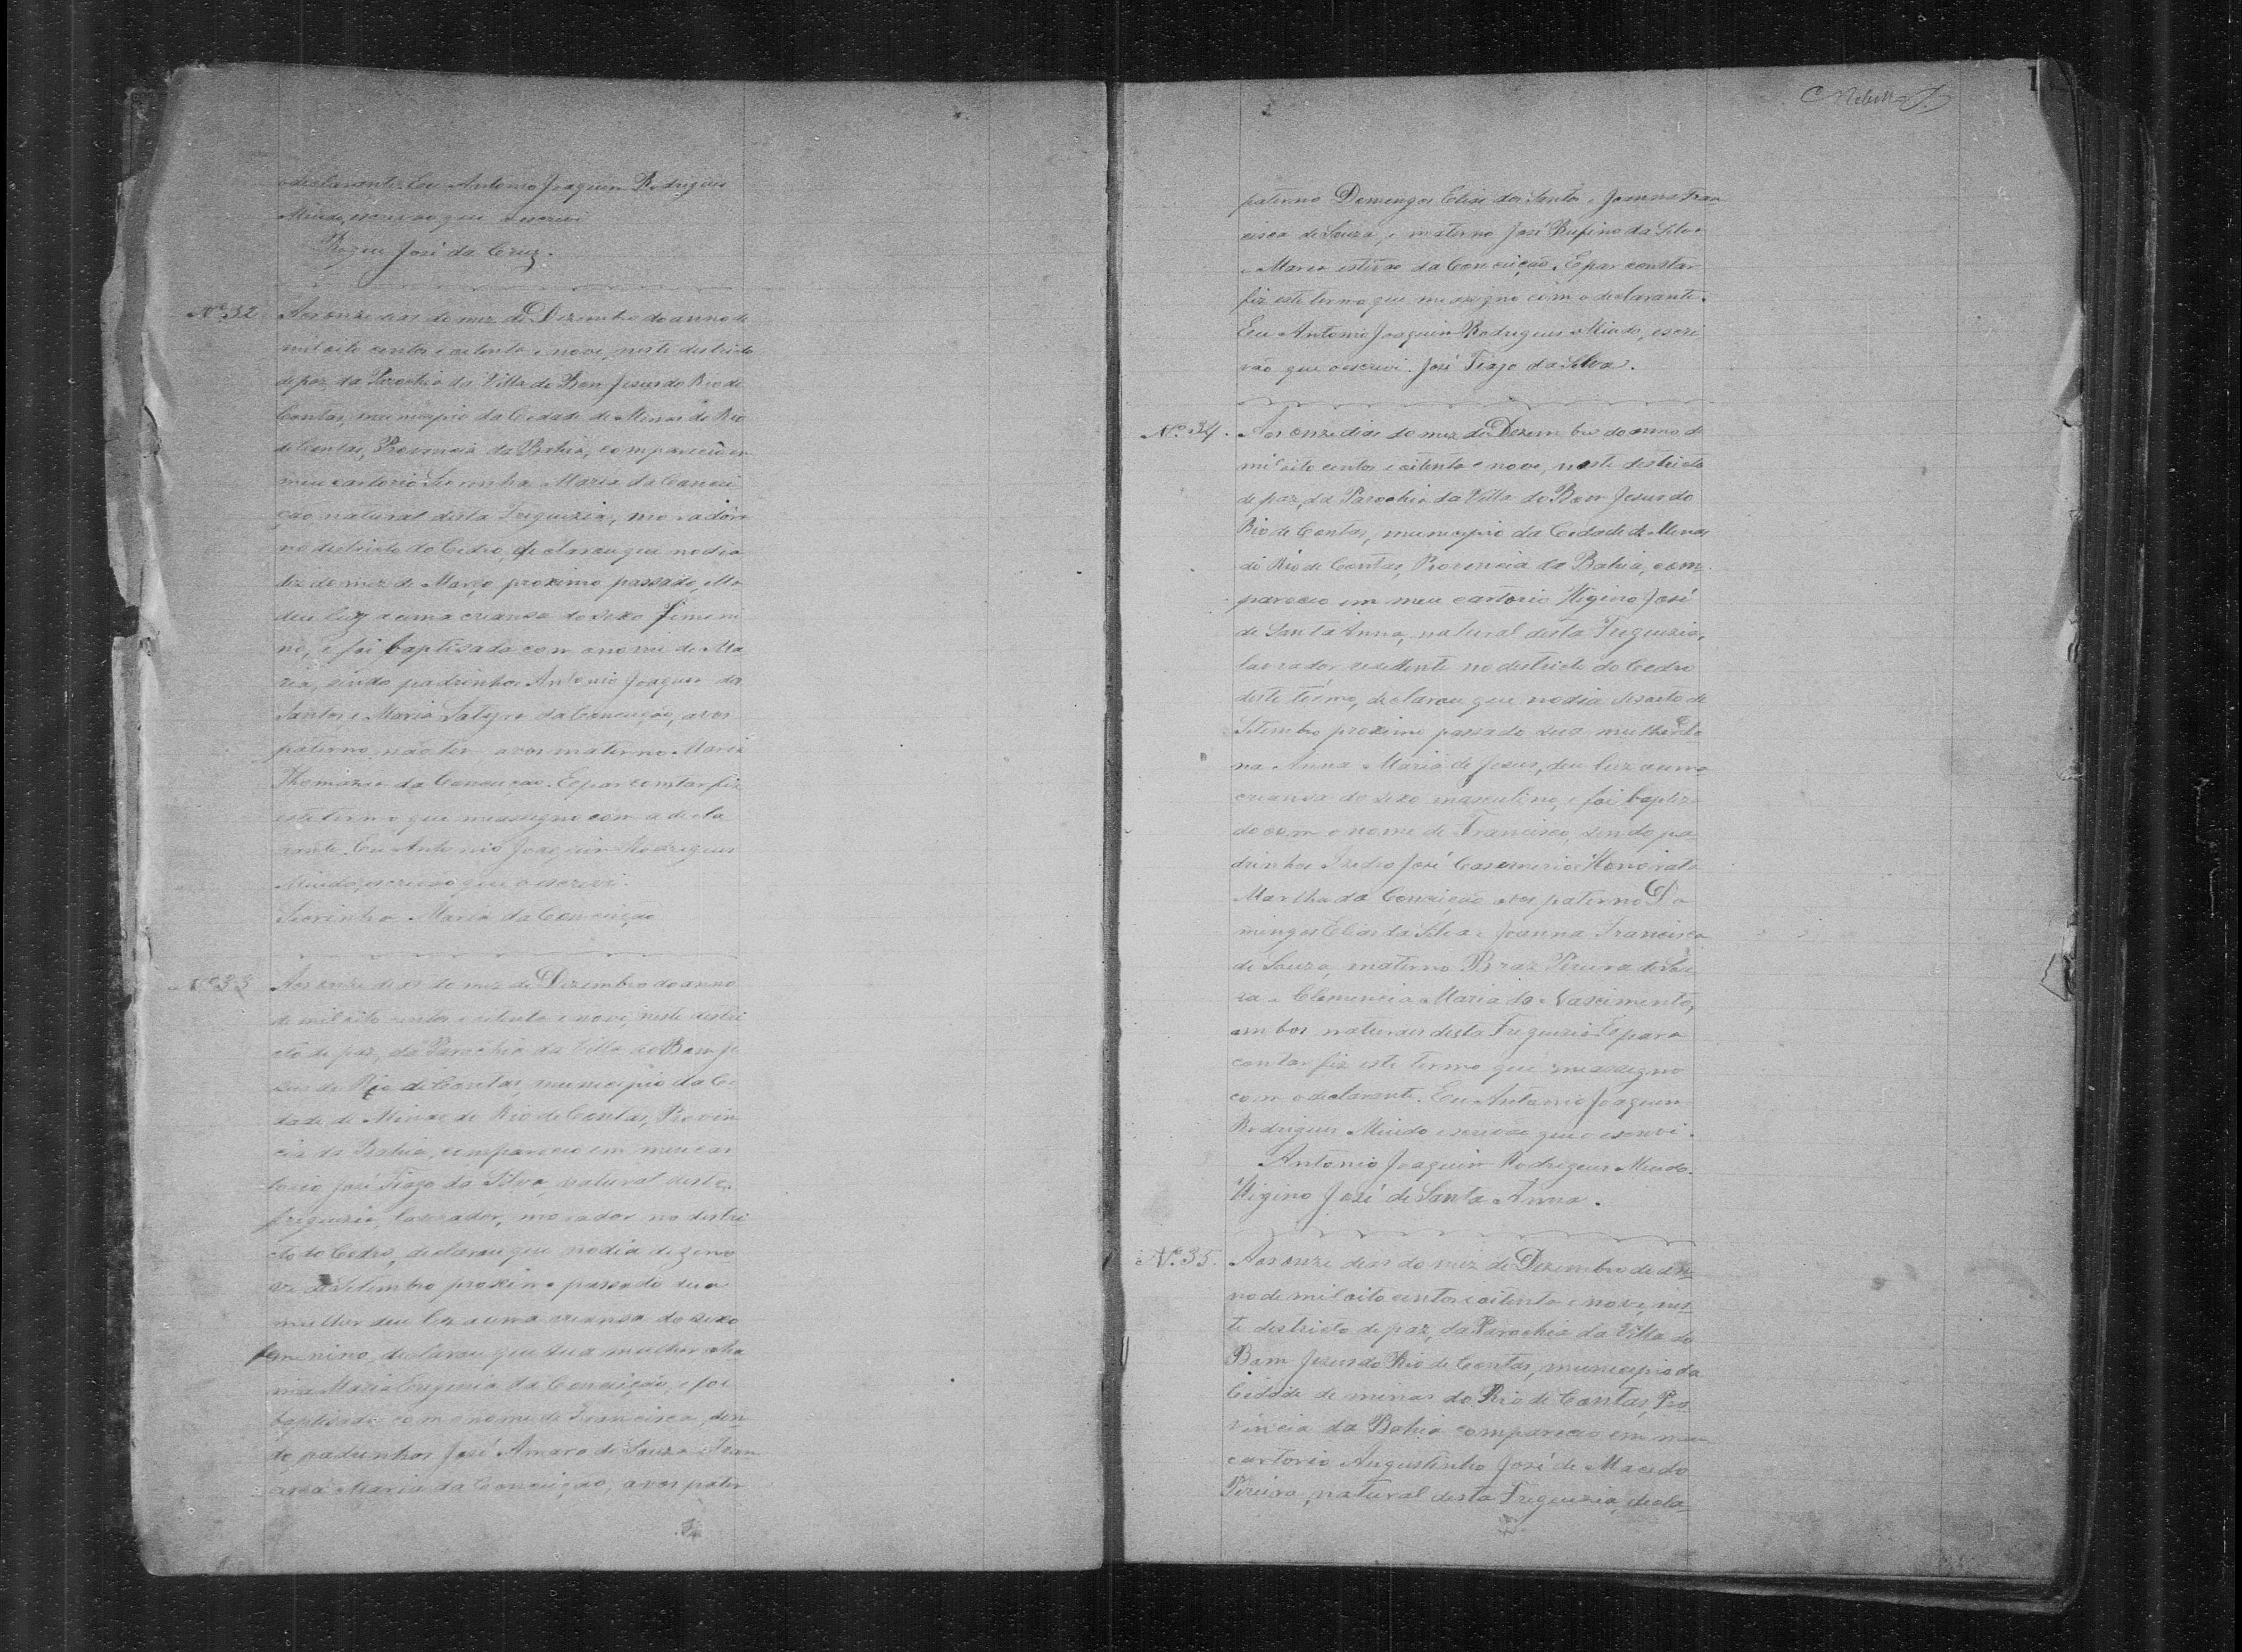 o declarante. Eu Antonio Joaquim Rodrigues
Miudo, escrivão que o escrevi
Roque José da Cruz.
Nº 32
Aos onze dias do mez de Dezembro do anno de
mil oito centos e oitenta e nove, neste districto
de paz, da Parochia da Villa do Bom Jesus do Rio de
Contas, municipio da Cidade de Minas do Rio
de Contas, Provincia da Bahia, compareceo em
meu cartorio Maria da Concei
ção natural desta Freguezia, moradora
no districto do Cedro, declarou que no dia
dez do mez de Março, proximo passado, ella
deu luz a uma criansa do sexo femeni
no, e foi baptisada com o nome de Ma
ria, sendo padrinhos Antonio Joaquim dos
Santos e Maria Satyra da Conceição, avos
paterno não ter avos materno Maria
Thomazia da Conceição. E par constar fiz
este termo que me assigno com a decla
rante. Eu Antonio Joaquim Rodrigues
Miudo, escrivão que o escrevi.
Maria da Conceição
Nº 33
Aos onze dias do mez de Dezembro do anno
de mil oito centos e oitenta e nove, neste distri
cto de paz, da Parochia da Villa do Bom Je
sus do Rio de Contas, municipio da Ci
dade de Minas do Rio de Contas, Provin
cia da Bahia, compareceo em meu car
torio José Tiago da Silva, natural desta
freguezia, lavrador, morador no distri
cto do Cedro, declarou que no dia dezeno
ve de Setembro proximo passado sua
mulher deu luz a uma criansa do sexo
femenino, declarou que sua mulher cha
ma Maria Eugenia da Conceição, e foi
baptisada com o nome de Francisca, sen
do padrinhos José Amaro de Souza e Fran
cisca Maria da Conceição, avos pater
paterno Domingos Elias dos Santos e Joanna Fran
cisca de Souza, e materno José Rufino da Silva
e Maria da Conceição. E par constar
fiz este termo que me assigno com o declarante.
Eu Antonio Joaquim Rodrigues Miudo, escri
vão que o escrevi. José Tiago da Silva.
Nº 34.
Aos onze dias do mez de Dezembro do anno de
mil oito centos e oitenta e nove, neste districto
de paz, da Parochia da Villa do Bom Jesus do
Rio de Contas, municipio da Cidade de Minas
do Rio de Contas, Provincia da Bahia, com
pareceo em meu cartorio Higino José
de Santa Anna, natural desta Freguezia,
lavrador residente no districto do Cedro
deste termo, declarou que no dia desoito de
Setembro proximo passado sua mulher
na Anna Maria de Jesus, deu luz a uma
criansa do sexo masculino, e foi baptiza
do com o nome de Francisco, sendo pa
drinhos Pedro José Casemerio e Honorata
Martha da Conceição avos paterno Do
mingos Elias da Silva e Joanna Francisca
de Souza, materno Braz Pereira de Sou
za e Clemencia Maria do Nascimento,
ambos naturaes desta Freguezia. E para
contar fiz este termo que me assigno
com o declarante. Eu Antonio Joaquim
Rodrigues Miudo escrivão que o escrevi.
Antonio Joaquim Rodrigues Miudo.
Higino José de Santa Anna.
Nº 35.
Aos onze dias do mez de Dezembro do an
no de mil oito centos e oitenta e nove, nes
te districto de paz, da Parochia da Villa do
Bom Jesus do Rio de Contas, municipio da
Cidade de minas do Rio de Contas, Pro
vincia da Bahia compareceo em meu
cartorio Augustinho José de Macedo
Pereira, natural desta Freguezia, decla-